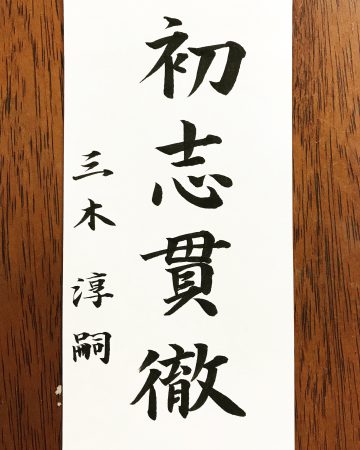 初志貫徹
三木淳嗣